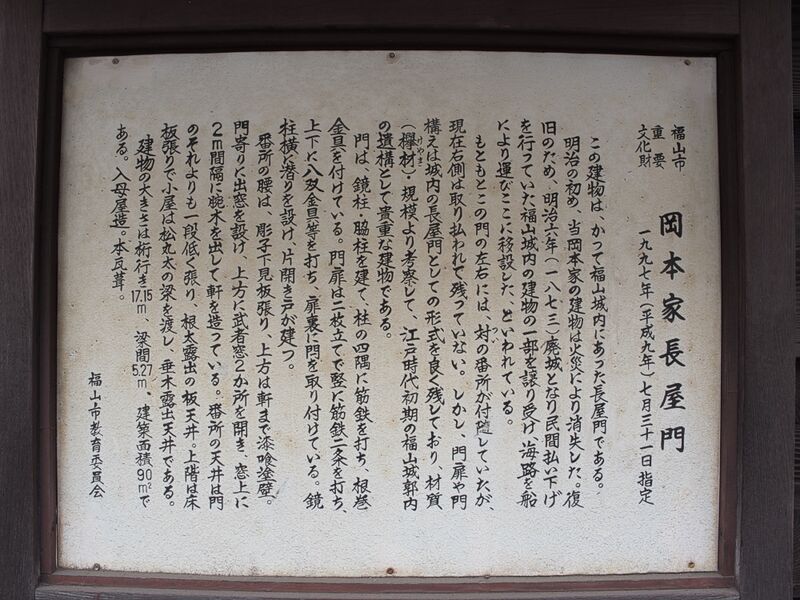 福山市
重要
文化財
岡本家長屋門
一九九七年(平成九年)七月三十一日指定
この建物は、かつて福山城内にあった長屋門である。
明治の初め、当岡本家の建物は火災により消失した。復
旧のため、明治六年(一八七三)廃城となり民間払い下げ
を行っていた福山城内の建物の一部を譲り受け、海路を船
により運びここに移設した、といわれている。
もともとこの門の左右には、対の番所が付随していたが、
つい
現在右側は取り払われて残っていない。しかし、門扉や門
構えは城内の長屋門としての形式を良く残しており、材質
(欅材)・規模より考察して、江戸時代初期の福山城郭内
けやき
の遺構として貴重な建物である。
門は、鏡柱・脇柱を建て、柱の四隅に筋鉄を打ち、根巻
金具を付けている。門扉は二枚立てで竪に筋鉄二条を打ち、
上下に八双金具等を打ち、扉裏に閂を取り付けている。鏡
柱横に潜りを設け、片開き戸が建つ。
番所の腰は、彫子下見板張り、上方は軒まで漆喰塗壁。
門寄りに出窓を設け、上方に武者窓2か所を開き、窓上に
2m間隔に腕木を出して軒を造っている。番所の天井は門
のそれよりも一段低く張り、根太露出の板天井。上階は床
板張りで小屋は松丸太の梁を渡し、垂木露出天井である。
建物の大きさは桁行き17.15m、梁間5.27m、建築面積90㎡で
ある。入母屋造。本瓦葺。
福山市教育委員会